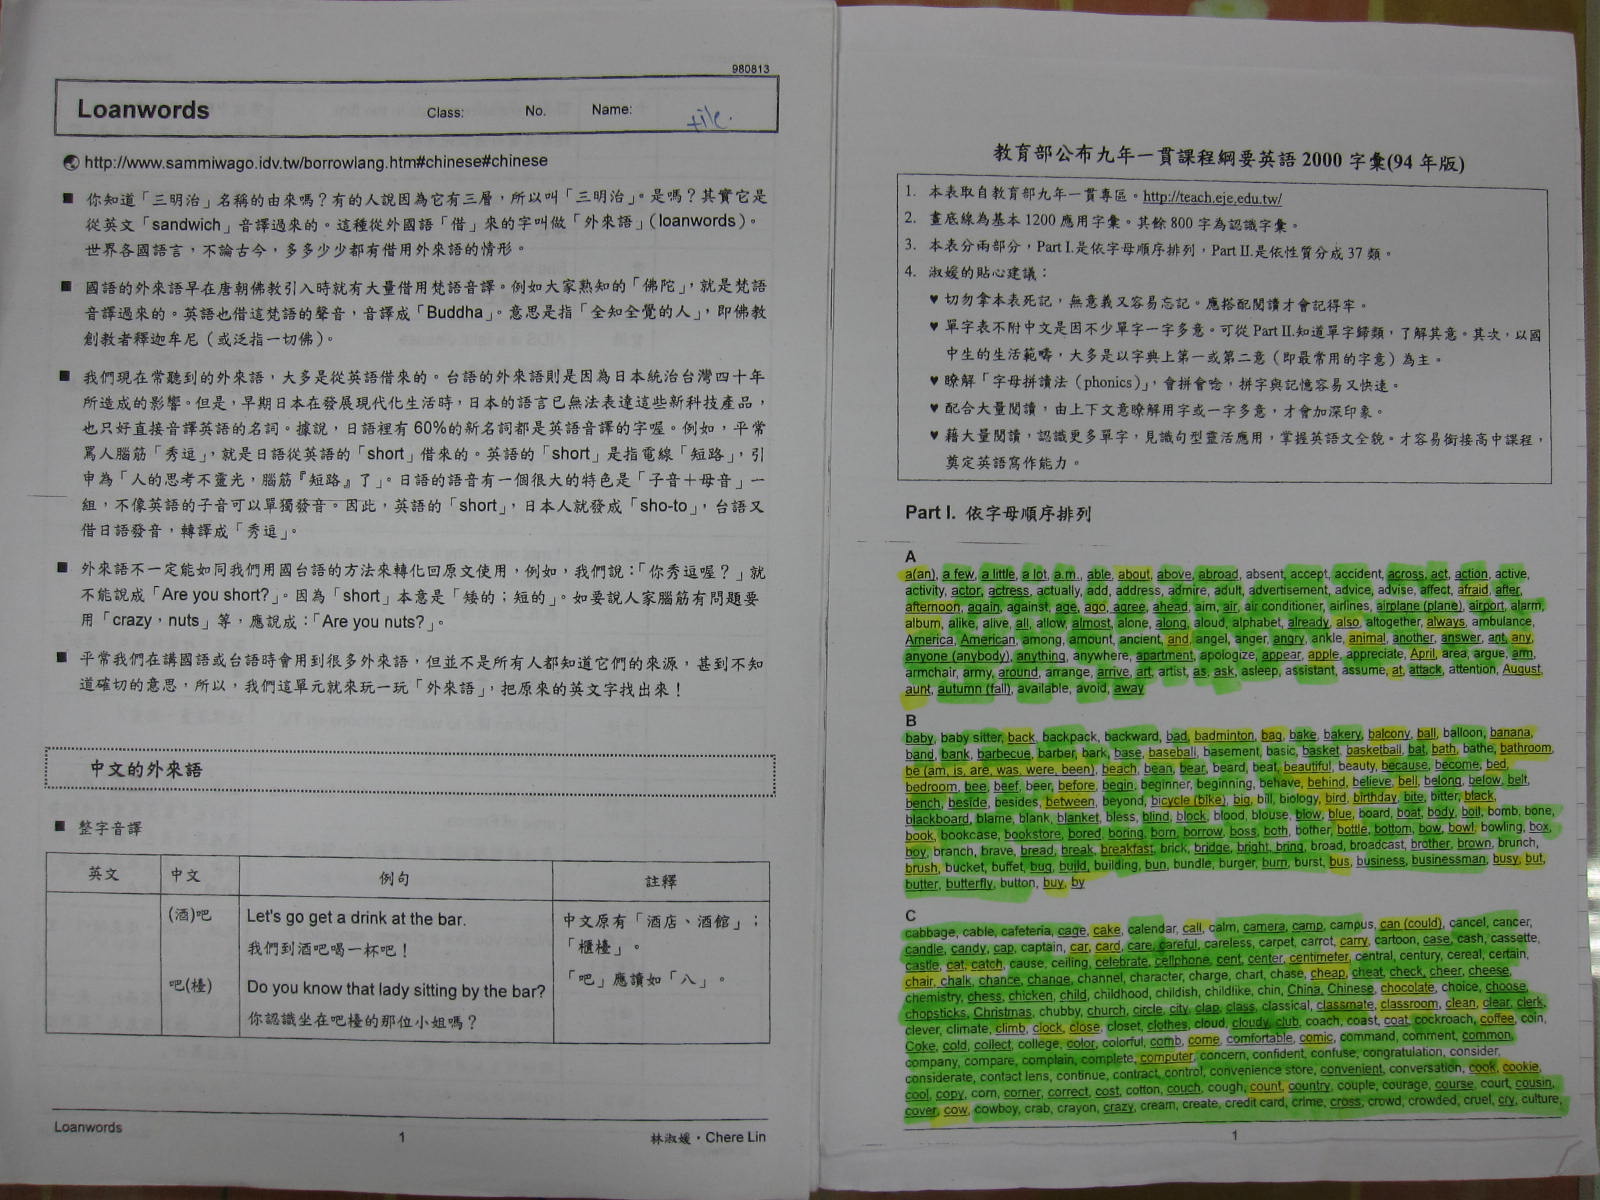 980813
Loanwords Class: No. Name: file.
http://www.sammiwago.idv.tw/borrowlang.htm#chinese#chinese
■ 你知道「三明治」名稱的由來嗎？有的人說因為它有三層，所以叫「三明治」。是嗎？其實它是
從英文「sandwich」音譯過來的。這種從外國語「借」來的字叫做「外來語」（loanwords）。
世界各國語言，不論古今，多多少少都有借用外來語的情形。
■ 國語的外來語早在唐朝佛教引入時就有大量借用梵語音譯。例如大家熟知的「佛陀」，就是梵語
音譯過來的。英語也借這梵語的聲音，音譯成「Buddha」。意思是指「全知全覺的人」，即佛教
創教者釋迦牟尼（或泛指一切佛）。
■ 我們現在常聽到的外來語，大多是從英語借來的。台語的外來語則是因為日本統治台灣四十年
所造成的影響。但是，早期日本在發展現代化生活時，日本的語言已無法表達這些新科技產品，
也只好直接音譯英語的名詞。據說，日語裡有 60%的新名詞都是英語音譯的字喔。例如，平常
罵人腦筋「秀逗」，就是日語從英語的「short」借來的。英語的「short」是指電線「短路」，引
申為「人的思考不靈光，腦筋『短路』了」。日語的語音有一個很大的特色是「子音＋母音」一
組，不像英語的子音可以單獨發音。因此，英語的「short」，日本人就發成「sho-to」，台語又
借日語發音，轉譯成「秀逗」。
■ 外來語不一定能如同我們用國台語的方法來轉化回原文使用，例如，我們說：「你秀逗喔？」就
不能說成「Are you short?」。因為「short」本意是「矮的；短的」。如要說人家腦筋有問題要
用「crazy，nuts」等，應說成：「Are you nuts?」。
■ 平常我們在講國語或台語時會用到很多外來語，但並不是所有人都知道它們的來源，甚到不知
道確切的意思，所以，我們這單元就來玩一玩「外來語」，把原來的英文字找出來！
中文的外來語
■ 整字音譯
英文 中文 例句 註釋
(酒)吧 Let's go get a drink at the bar. 中文原有「酒店、酒館」；
我們到酒吧喝一杯吧！ 「櫃檯」。
吧(檯) Do you know that lady sitting by the bar? 「吧」應讀如「八」。
你認識坐在吧檯的那位小姐嗎？
Loanwords 1 林淑媛・Chere Lin
教育部公布九年一貫課程綱要英語 2000 字彙(94 年版)
1. 本表取自教育部九年一貫專區。http://teach.eje.edu.tw/
2. 畫底線為基本 1200 應用字彙。其餘 800 字為認識字彙。
3. 本表分兩部分，Part I.是依字母順序排列，Part II.是依性質分成 37 類。
4. 淑媛的貼心建議：
♥ 切勿拿本表死記，無意義又容易忘記。應搭配閱讀才會記得牢。
♥ 單字表不附中文是因不少單字一字多意。可從 Part II.知道單字歸類，了解其意。其次，以國
中生的生活範疇，大多是以字典上第一或第二意（即最常用的字意）為主。
♥ 瞭解「字母拼讀法（phonics）」，會拼會唸，拼字與記憶容易又快速。
♥ 配合大量閱讀，由上下文意瞭解用字或一字多意，才會加深印象。
♥ 藉大量閱讀，認識更多單字，見識句型靈活應用，掌握英語文全貌。才容易銜接高中課程，
奠定英語寫作能力。
Part I. 依字母順序排列
A
a(an), a few, a little, a lot, a.m., able, about, above, abroad, absent, accept, accident, across, act, action, active,
activity, actor, actress, actually, add, address, admire, adult, advertisement, advice, advise, affect, afraid, after,
afternoon, again, against, age, ago, agree, ahead, aim, air, air conditioner, airlines, airplane (plane), airport, alarm,
album, alike, alive, all, allow, almost, alone, along, aloud, alphabet, already, also, altogether, always, ambulance,
America, American, among, amount, ancient, and, angel, anger, angry, ankle, animal, another, answer, ant, any,
anyone (anybody), anything, anywhere, apartment, apologize, appear, apple, appreciate, April, area, argue, arm,
armchair, army, around, arrange, arrive, art, artist, as, ask, asleep, assistant, assume, at, attack, attention, August,
aunt, autumn (fall), available, avoid, away
B
baby, baby sitter, back, backpack, backward, bad, badminton, bag, bake, bakery, balcony, ball, balloon, banana,
band, bank, barbecue, barber, bark, base, baseball, basement, basic, basket, basketball, bat, bath, bathe, bathroom,
be (am, is, are, was, were, been), beach, bean, bear, beard, beat, beautiful, beauty, because, become, bed,
bedroom, bee, beef, beer, before, begin, beginner, beginning, behave, behind, believe, bell, belong, below, belt,
bench, beside, besides, between, beyond, bicycle (bike), big, bill, biology, bird, birthday, bite, bitter, black,
blackboard, blame, blank, blanket, bless, blind, block, blood, blouse, blow, blue, board, boat, body, boil, bomb, bone,
book, bookcase, bookstore, bored, boring, born, borrow, boss, both, bother, bottle, bottom, bow, bowl, bowling, box,
boy, branch, brave, bread, break, breakfast, brick, bridge, bright, bring, broad, broadcast, brother, brown, brunch,
brush, bucket, buffet, bug, build, building, bun, bundle, burger, burn, burst, bus, business, businessman, busy, but,
butter, butterfly, button, buy, by
C
cabbage, cable, cafeteria, cage, cake, calendar, call, calm, camera, camp, campus, can (could), cancel, cancer,
candle, candy, cap, captain, car, card, care, careful, careless, carpet, carrot, carry, cartoon, case, cash, cassette,
castle, cat, catch, cause, ceiling, celebrate, cellphone, cent, center, centimeter, central, century, cereal, certain,
chair, chalk, chance, change, channel, character, charge, chart, chase, cheap, cheat, check, cheer, cheese,
chemistry, chess, chicken, child, childhood, childish, childlike, chin, China, Chinese, chocolate, choice, choose,
chopsticks, Christmas, chubby, church, circle, city, clap, class, classical, classmate, classroom, clean, clear, clerk,
clever, climate, climb, clock, close, closet, clothes, cloud, cloudy, club, coach, coast, coat, cockroach, coffee, coin,
Coke, cold, collect, college, color, colorful, comb, come, comfortable, comic, command, comment, common,
company, compare, complain, complete, computer, concern, confident, confuse, congratulation, consider,
considerate, contact lens, continue, contract, control, convenience store, convenient, conversation, cook, cookie,
cool, copy, corn, corner, correct, cost, cotton, couch, cough, count, country, couple, courage, course, court, cousin,
cover, cow, cowboy, crab, crayon, crazy, cream, create, credit card, crime, cross, crowd, crowded, cruel, cry, culture,
1